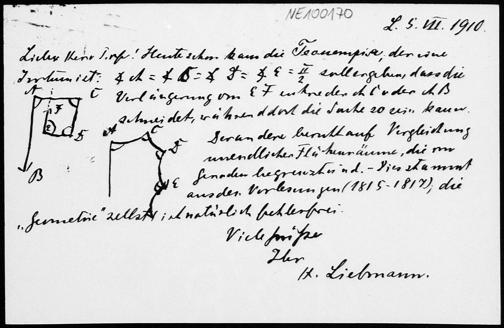 NE100170
L. 5. VII. 1910.
Lieber Herr Prof! Heute schon kam die der eine
Irrtum ist: ∢ A = ∢ C = ∢ D = ∢ E = π/2 soll ergeben, dass die
A C
Verlängerung von E F entweder A C oder A B
schneidet, während dort die Sache so sein kann.
F E D
B
A C D E
Der andere beruht auf Vergleichung
unendlicher Flächenräume, die von
Geraden begrenzt sind. - Dies stammt
aus den Vorlesungen (1815-1817), die
"Geometrie" selbst ist natürlich fehlerfrei.
Viele Grüße
Ihr
H. Liebmann.